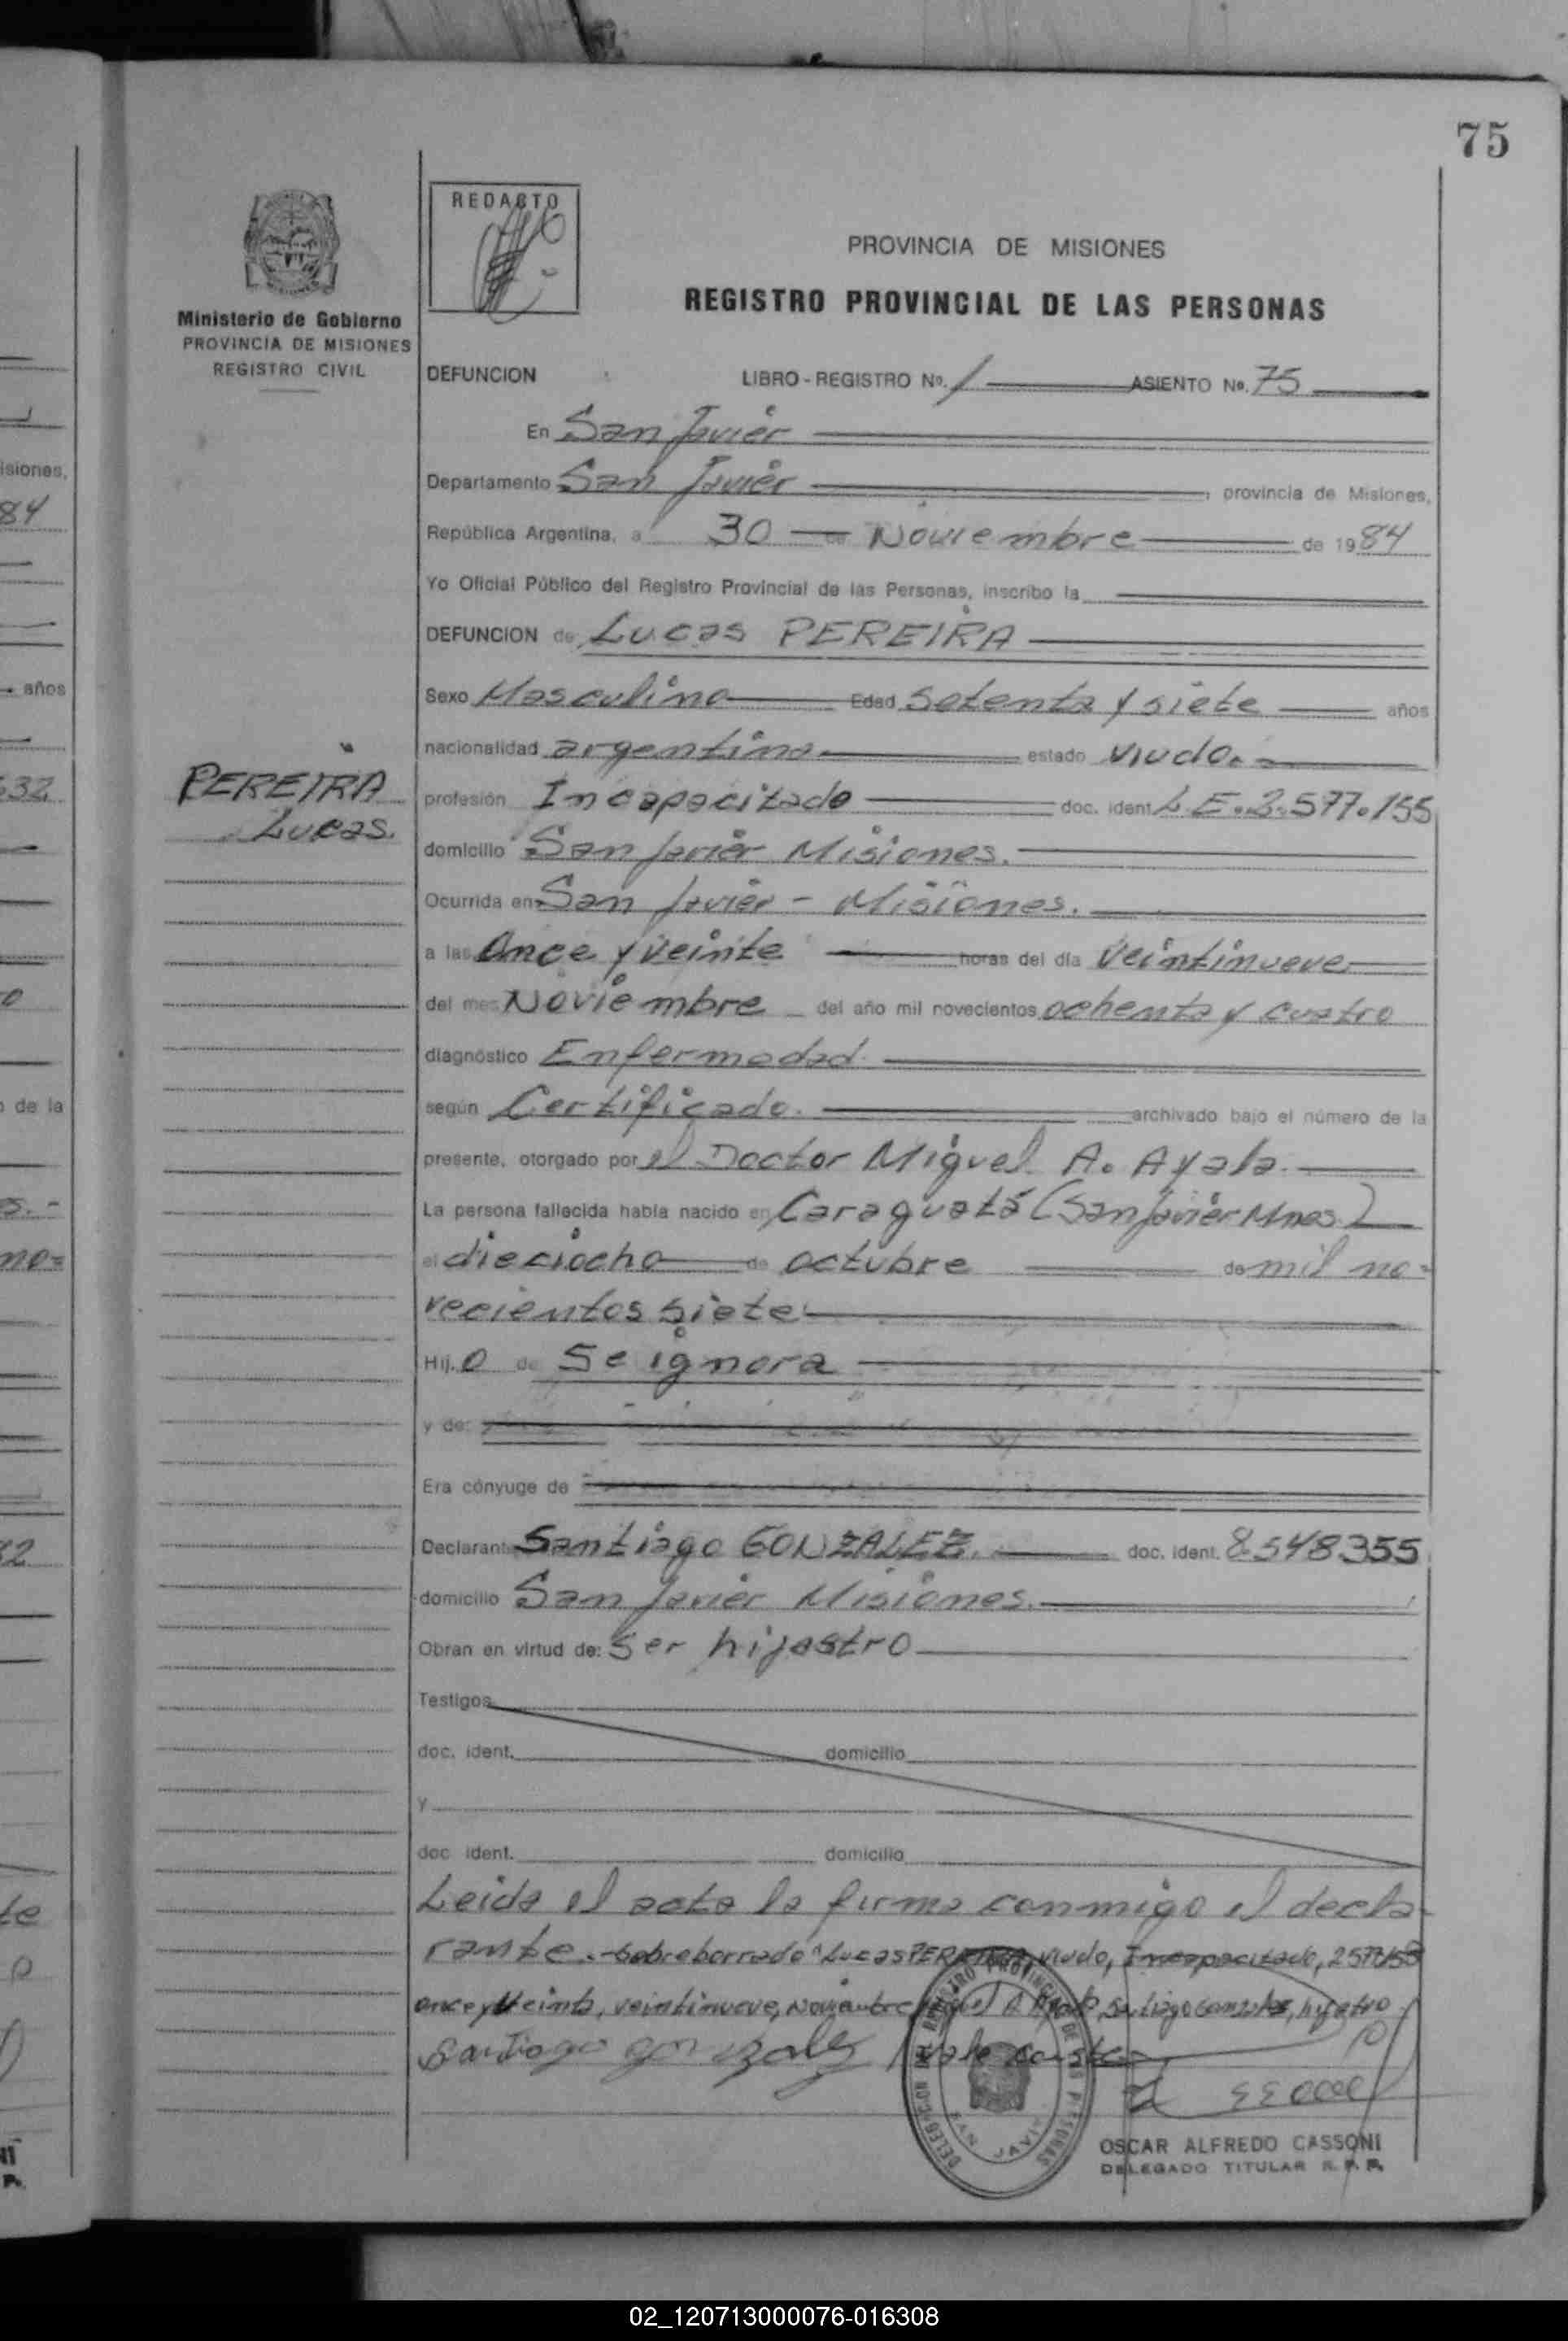 75
REDACTO
PROVINCIA DE MISIONES
REGISTRO PROVINCIAL DE LAS PERSONAS
Ministerio de Gobierno
PROVINCIA DE MISIONES
REGISTRO CIVIL
DEFUNCION LIBRO - REGISTRO Nº. 1 ASIENTO Nº. 75
En San Javier
Departamento San Javier, provincia de Misiones,
República Argentina, a 30 de Noviembre de 1984
Yo Oficial Público del Registro Provincial de las Personas, inscribo la
DEFUNCION de Lucas PEREIRA
Sexo Masculino Edad setenta y siete años
nacionalidad argentina estado viudo.
PEREIRA
Lucas.
profesión Incapacitado doc. ident. L.E. 2.577.155
domicilio San Javier Misiones.
Ocurrida en San Javier - Misiones.
a las Once y veinte horas del día veintinueve
del mes Noviembre del año mil novecientos ochenta y cuatro
diagnóstico Enfermedad.
según Certificado. archivado bajo el número de la
presente, otorgado por el Doctor Miguel A. Ayala.
La persona fallecida había nacido en Caraguatá (San Javier Mnes.)
el dieciocho de octubre de mil no-
vecientos siete
Hij.o de Se ignora
y de:
Era cónyuge de
Declarante Santiago GONZALEZ. doc. ident. 8548355
domicilio San Javier Misiones.
Obran en virtud de: Ser hijastro
Testigos
doc. ident. domicilio
y
doc ident. domicilio
Leida el acta la firma conmigo el decla-
rante.- Sobreborrado "Lucas viudo, Incapacitado,
once y veinte, veintinueve, Noviembre, A. Santiago Gonzalez, hijastro
Santiago gonzalez Vale conste
OSCAR ALFREDO CASSONI
DELEGADO TITULAR R. P. P.
02_120713000076-016308